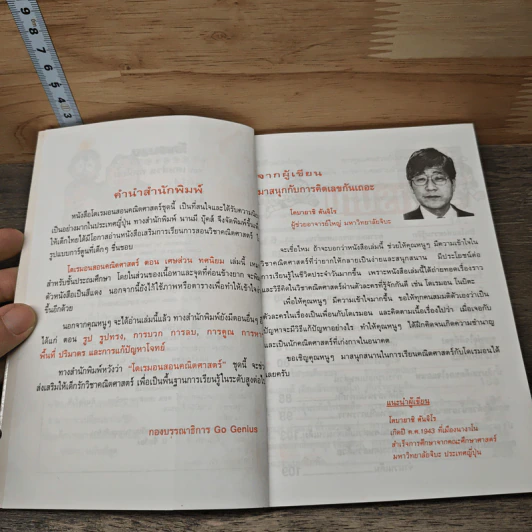 9 8 7 6 5 4 3
คำนำสำนักพิมพ์
หนังสือโดเรมอนสอนคณิตศาสตร์ชุดนี้ เป็นที่สนใจและได้รับความนิยม
เป็นอย่างมากในประเทศญี่ปุ่น ทางสำนักพิมพ์ นานมี บุ๊คส์ จึงจัดพิมพ์ขึ้น
ให้เด็กไทยได้มีโอกาสอ่านหนังสือเสริมการเรียนการสอนวิชาคณิตศาสตร์
รูปแบบการ์ตูนที่เด็กๆ ชื่นชอบ
โดเรมอนสอนคณิตศาสตร์ ตอน เศษส่วน ทศนิยม เล่มนี้
สำหรับชั้นประถมศึกษา โดยในส่วนของเนื้อหาและจุดที่ค่อนข้างยาก
ตัวหนังสือเป็นสีแดง นอกจากนี้ยังใช้ภาพหรือตารางเพื่อทำให้เข้าใจ
ขึ้นอีกด้วย
นอกจากคุณหนูๆ จะได้อ่านเล่มนี้แล้ว ทางสำนักพิมพ์ยังมีตอนอื่นๆ
ได้แก่ ตอน รูป รูปทรง, การบวก การลบ, การคูณ การหาร
พื้นที่ ปริมาตร และการแก้ปัญหาโจทย์
ทางสำนักพิมพ์หวังว่า "โดเรมอนสอนคณิตศาสตร์" ชุดนี้
ส่งเสริมให้เด็กรักวิชาคณิตศาสตร์ เพื่อเป็นพื้นฐานการเรียนรู้ในระดับสูงต่อไป
กองบรรณาธิการ Go Genius
จากผู้เขียน
มาสนุกกับการคิดเลขกันเถอะ
โคบายาชิ คันจิโร
ผู้ช่วยอาจารย์ใหญ่ มหาวิทยาลัยจิบะ
จะเชื่อไหม ถ้าจะบอกว่าหนังสือเล่มนี้ ช่วยให้คุณหนูๆ มีความเข้าใจใน
วิชาคณิตศาสตร์ที่ว่ายากให้กลายเป็นง่ายและสนุกสนาน มีประโยชน์ต่อ
การเรียนรู้ในชีวิตประจำวันมากขึ้น เพราะหนังสือเล่มนี้ได้ถ่ายทอดเรื่องราว
และวิธีคิดในวิชาคณิตศาสตร์ผ่านตัวละครที่รู้จักกันดี เช่น โดเรมอน โนบิตะ
เพื่อให้คุณหนูๆ มีความเข้าใจมากขึ้น ขอให้ทุกคนสมมติตัวเองว่าเป็น
ตัวละครในเรื่องเป็นเพื่อนกับโดเรมอน และติดตามเนื้อเรื่องไปว่า เมื่อเจอกับ
ปัญหาจะมีวิธีแก้ปัญหาอย่างไร ทำให้คุณหนูๆ ได้ฝึกคิดจนเกิดความชำนาญ
และเป็นนักคณิตศาสตร์ที่เก่งกาจในอนาคต
ขอเชิญคุณหนูๆ มาสนุกสนานในการเรียนคณิตศาสตร์กับโดเรมอนได้
เลยครับ
แนะนำผู้เขียน
โคบายาชิ คันจิโร
เกิดปี ค.ศ.1943 ที่เมืองนางาโน
สำเร็จการศึกษาจากคณะศึกษาศาสตร์
มหาวิทยาลัยจิบะ ประเทศญี่ปุ่น